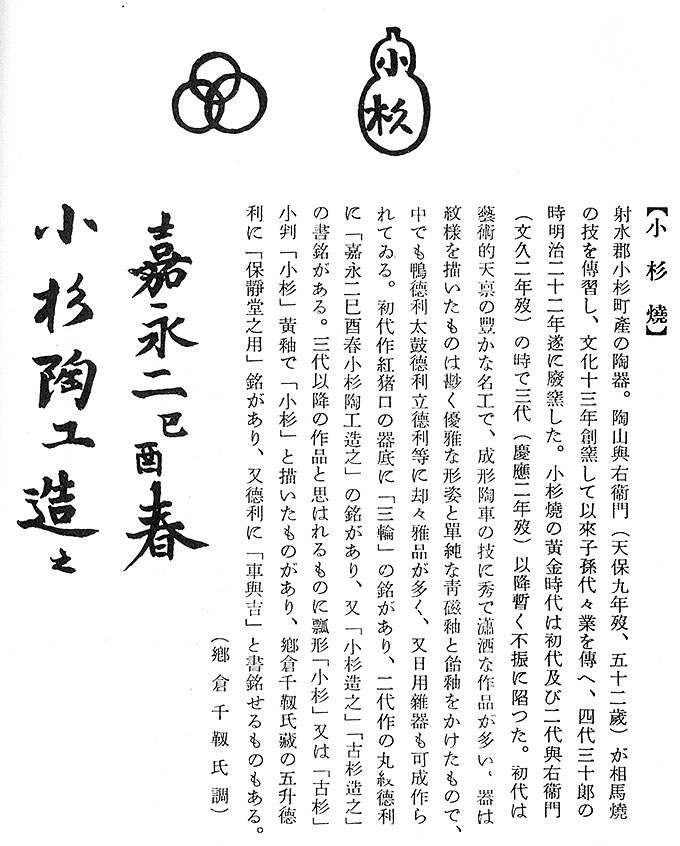 小
杉
【小杉燒】
射水郡小杉町產の陶器。陶山與右衞門（天保九年歿、五十二歲）が相馬燒
の技を傳習し、文化十三年創窯して以來子孫代々業を傳へ、四代三十郎の
時明治二十二年遂に廢窯した。小杉燒の黃金時代は初代及び二代與右衞門
（文久二年歿）の時で三代（慶應二年歿）以降暫く不振に陷つた。初代は
藝術的天禀の豐かな名工で、成形陶車の技に秀で瀟洒な作品が多い、器は
紋樣を描いたものは尠く優雅な形姿と單純な靑磁釉と飴釉をかけたもので、
中でも鴨德利太鼓德利立德利等に却々雅品が多く、又日用雜器も可成作ら
れてゐる。初代作紅猪口の器底に「三輪」の銘があり、二代作の丸紋德利
に「嘉永二巳酉春小杉陶工造之」の銘があり、又「小杉造之」「古杉造之」
の書銘がある。三代以降の作品と思はれるものに瓢形「小杉」又は「古杉」
小判「小杉」黃釉で「小杉」と描いたものがあり、鄕倉千靱氏藏の五升德
利に「保靜堂之用」銘があり、又德利に「車與吉」と書銘せるものもある。
（鄕倉千靱氏調）
嘉永二巳酉春
小杉陶工造之